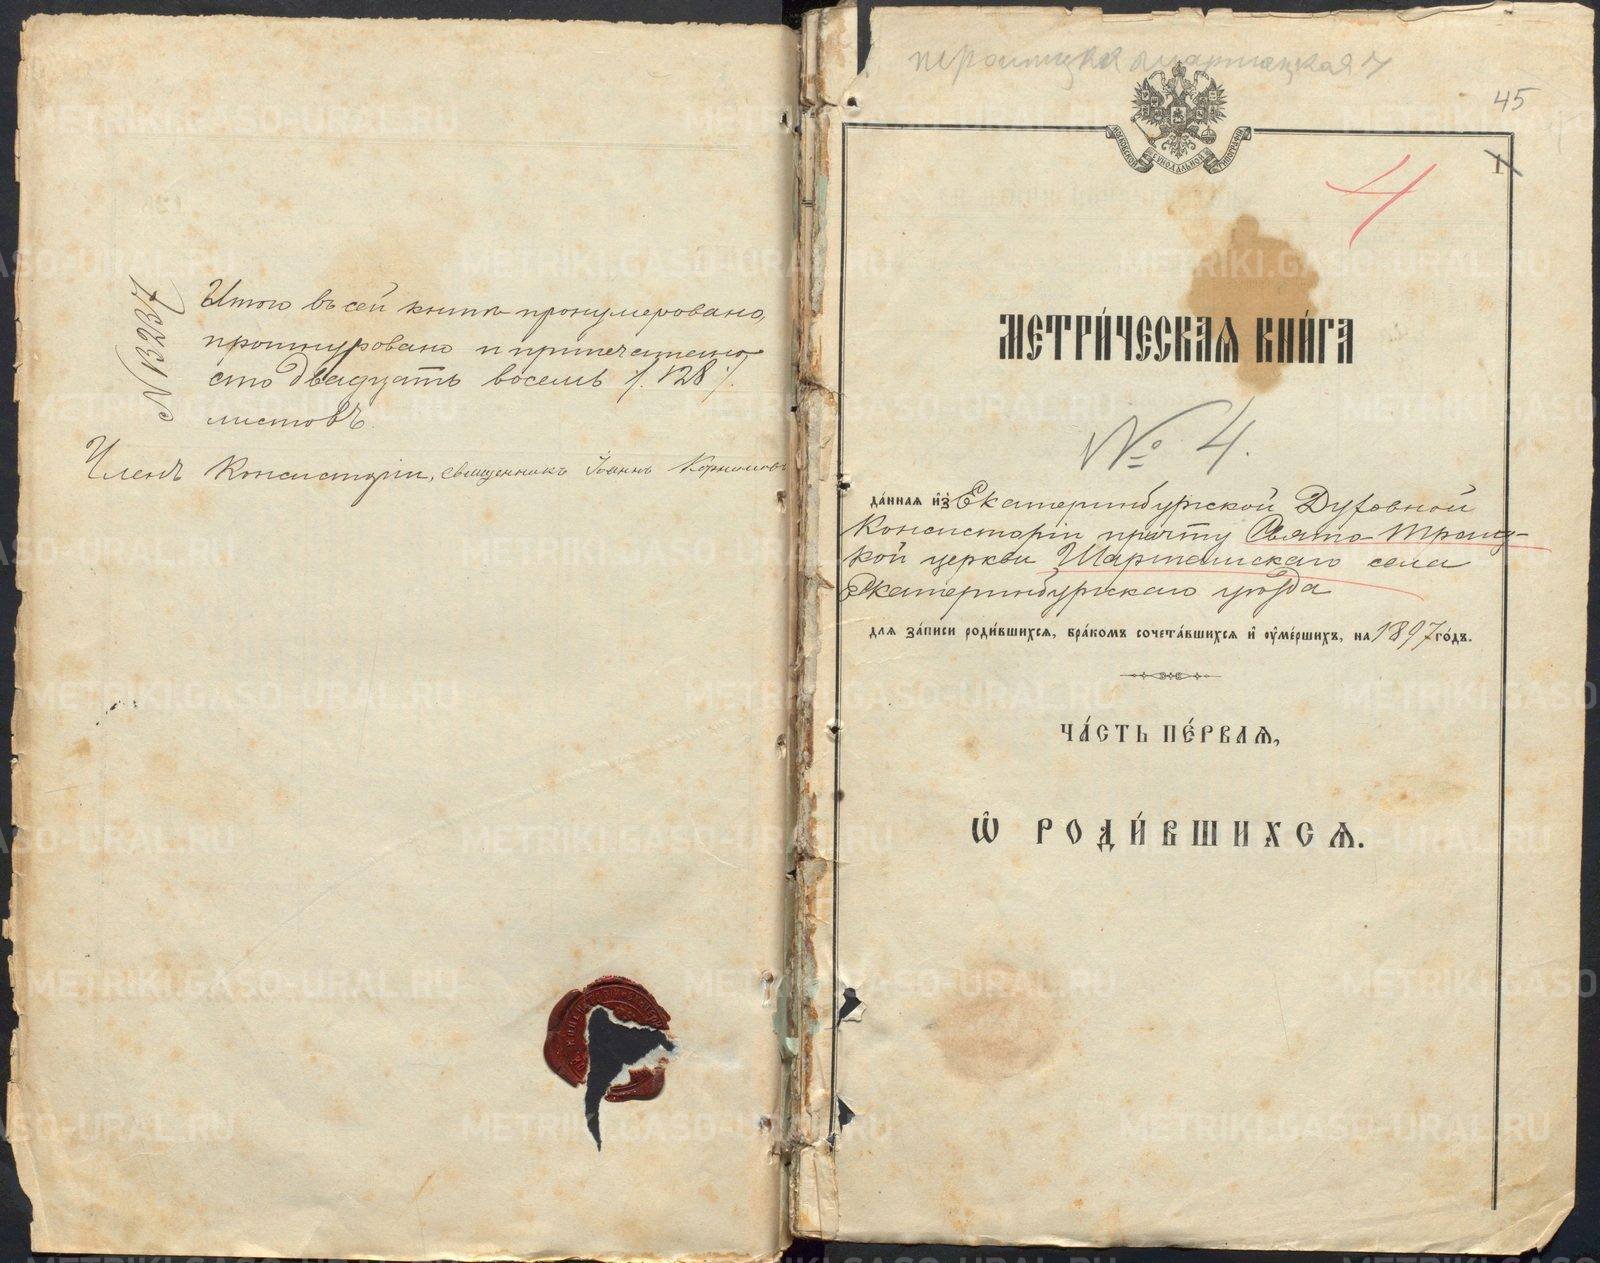 № 13231
Итого въ сей книгѣ пронумеровано,
прошнуровано и припечатано
сто двадцать восемь /. 128 ./
листовъ.
Членъ Консисторіи, священникъ Іоаннъ
45
1
МОСКОВСКОЙ СѴНОДАЛЬНОЙ ТИПОГРАФІИ
4
МЕТРИ́ЧЕСКАѦ КНИ́ГА
№ 4.
да́ннаѧ и҆з̾ Екатеринбургской Духовной
Консисторіи причту Свято-Троиц-
кой церкви Шарташскаго села
Екатеринбургскаго уѣзда
длѧ за́писи роди́вшихсѧ, бра́комъ сочета́вшихсѧ и҆ ᲂу҆ме́ршихъ, на 1897 го́дъ.
ЧА́СТЬ ПЕ́РВАѦ,
Ѽ РОДИ́ВШИХСѦ.
METRIKI.GASO-URAL.RU